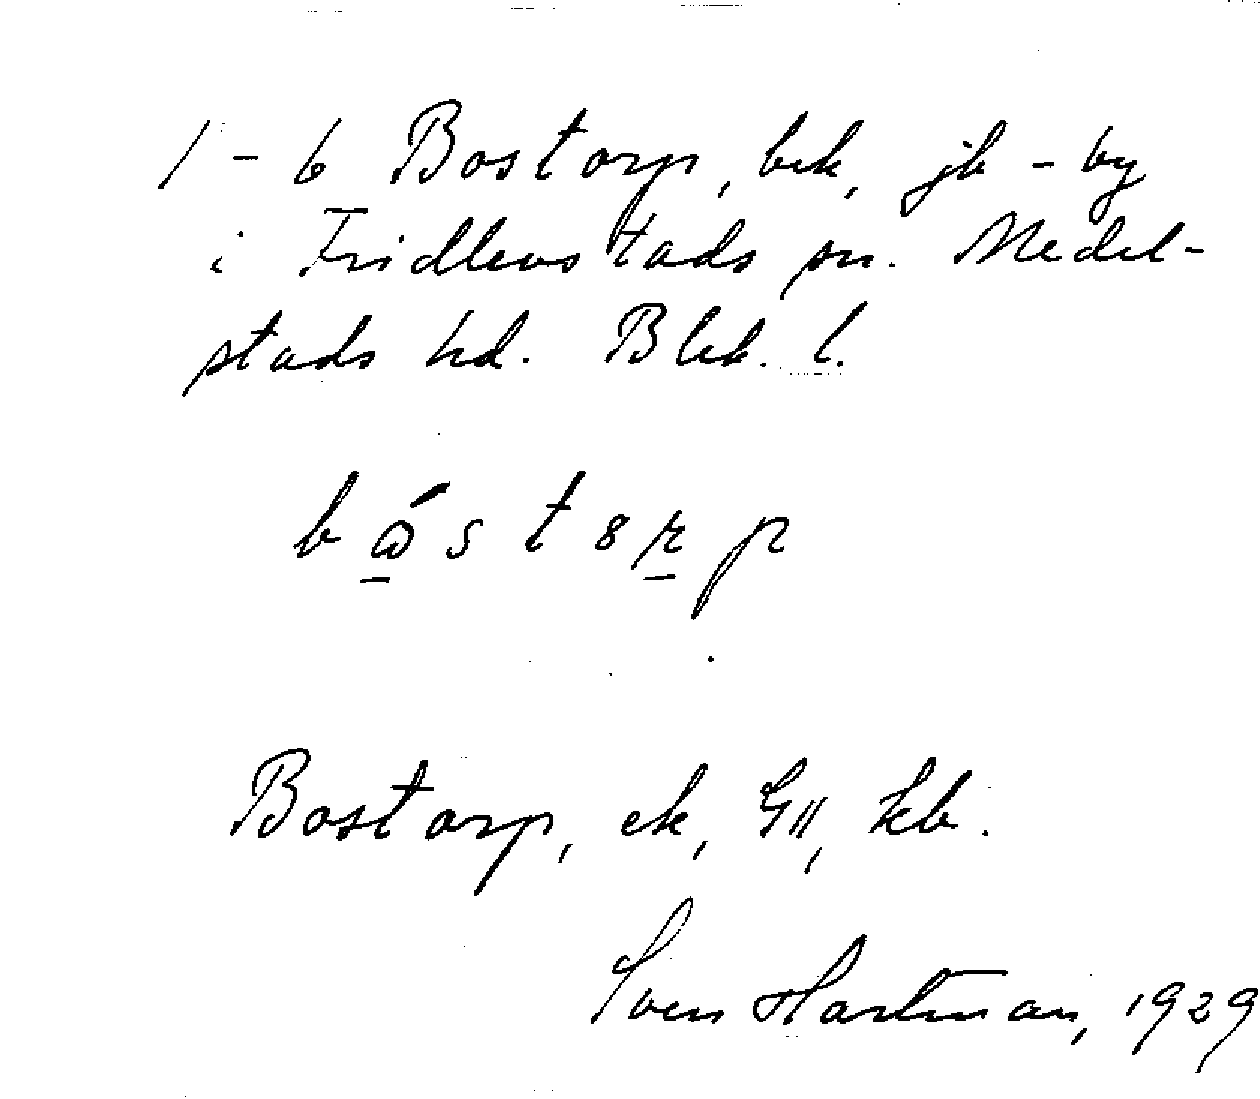 1-6 Bostorp, bek, jb-by
i Fridlevstads sn. Medel-
stads hd. Blek. l.
Bostorp, ek, GII, kb.
Sven Hartman, 1929